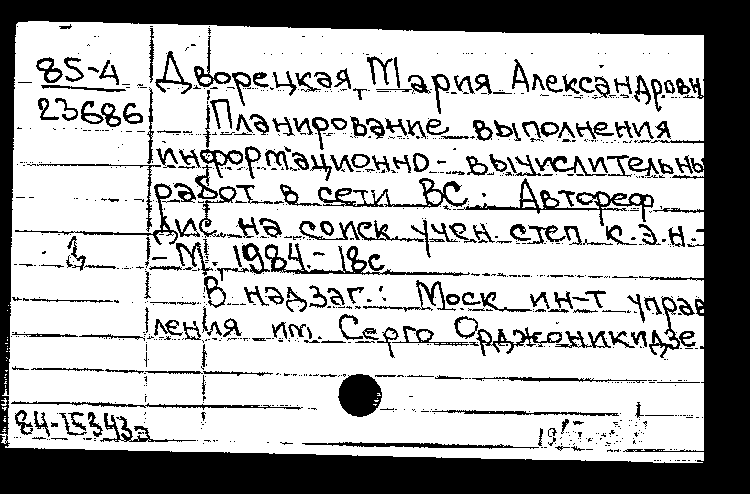 85-4 Дворецкая, Мария Александровн
23686 Планирование выполнения
информационно-вычислительны
работ в сети ВС: Автореф.
дис на соиск учен. степ. к.э.н.-
-М., 1984.-18с
В надзаг.: Моск ин-т управ
ления им. Серго Орджоникидзе.
84-15343а